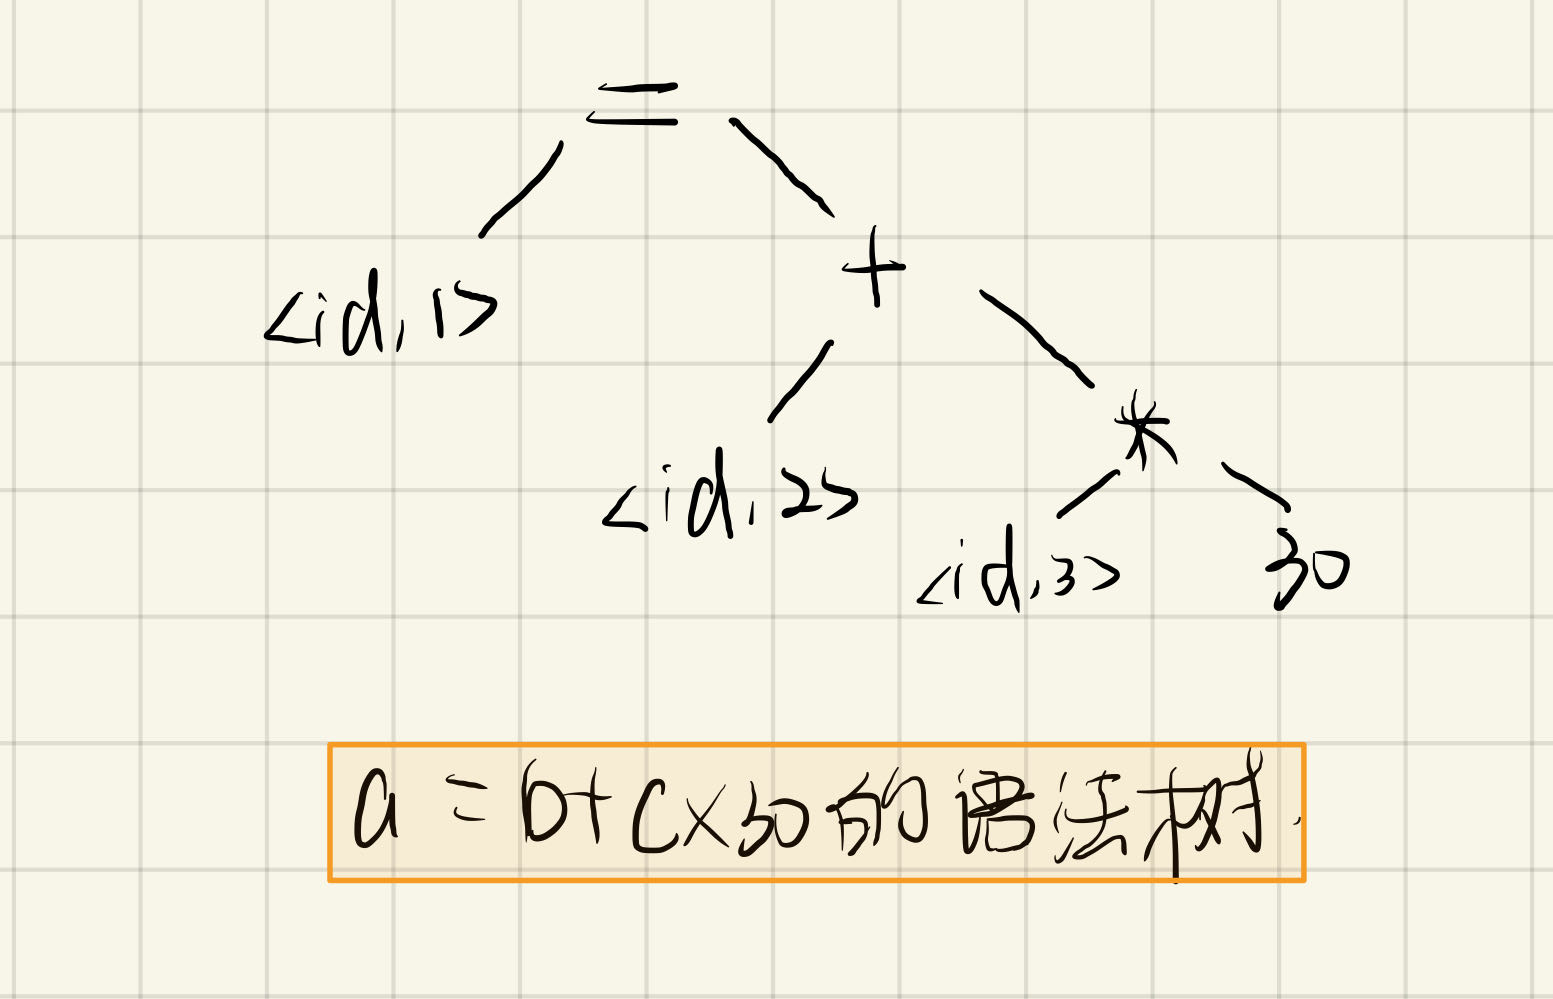 =
<id, 1>
+
*
<id, 2>
<id, 3>
30
a = b + c × 30 的语法树.